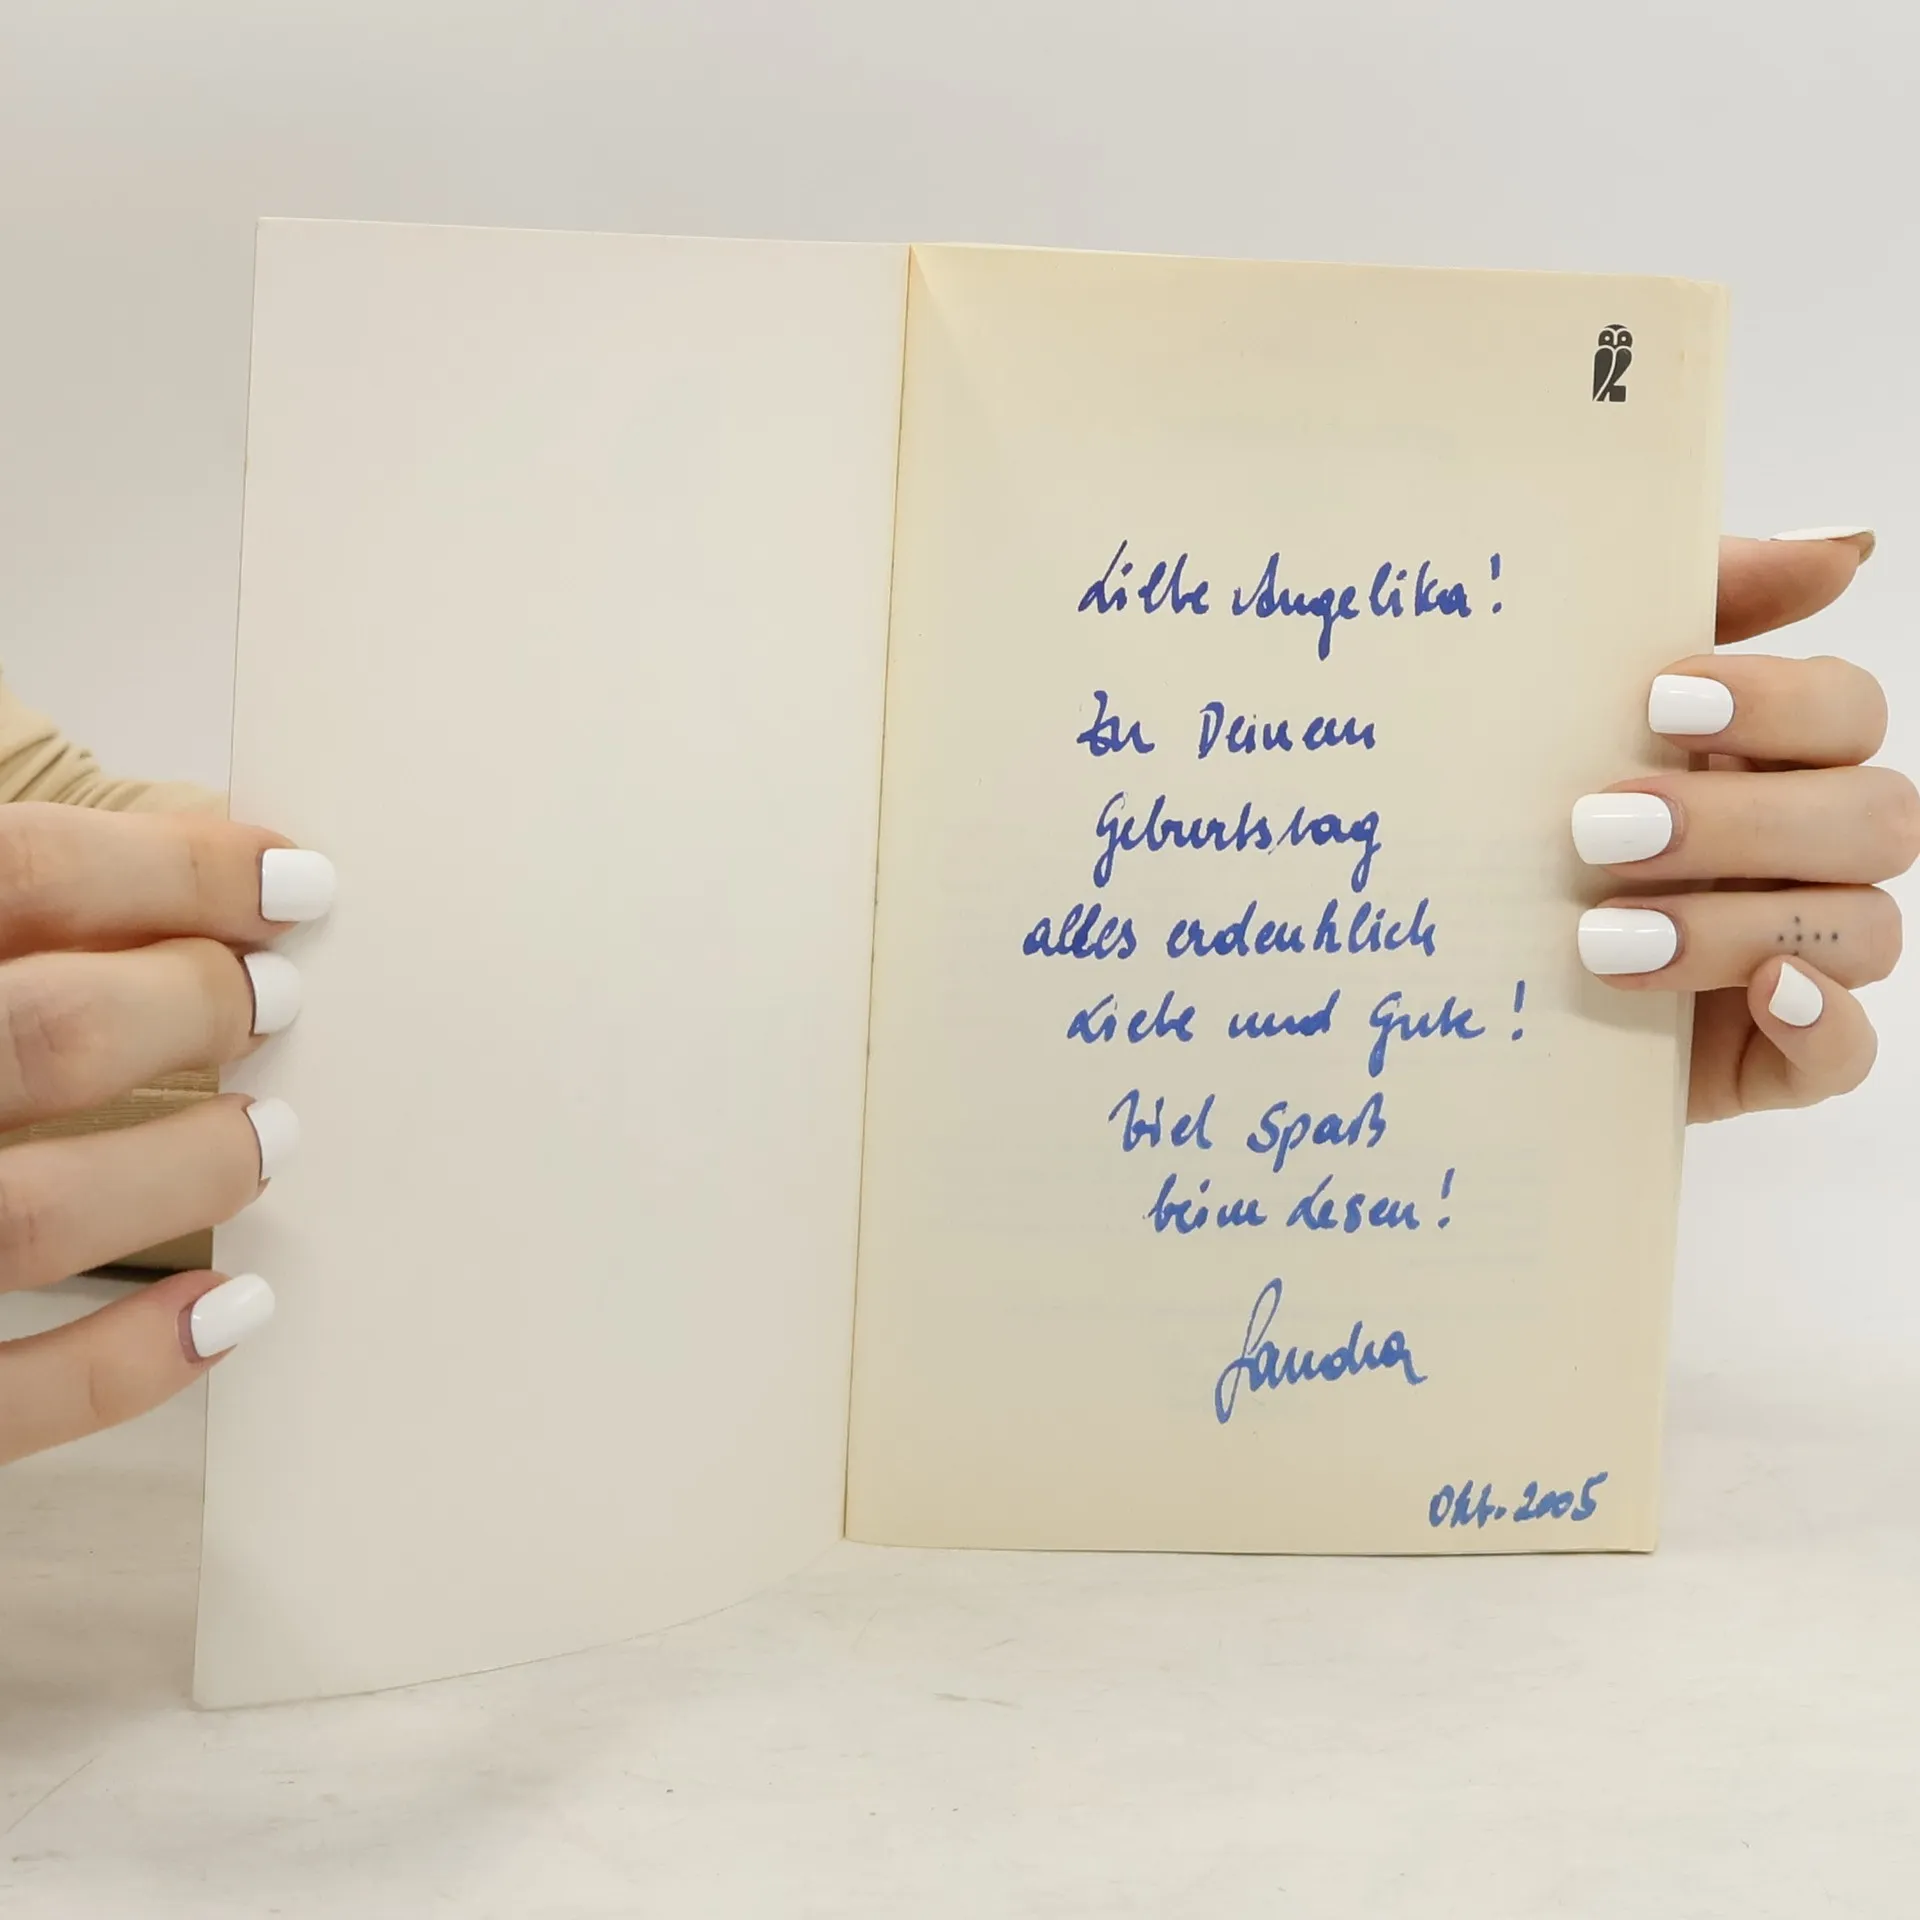 Liebe Angelika!
Zu Deinem
Geburtstag
alles erdenklich
Liebe und Gute!
Viel Spaß
beim Lesen!
Sandra
Okt. 2005